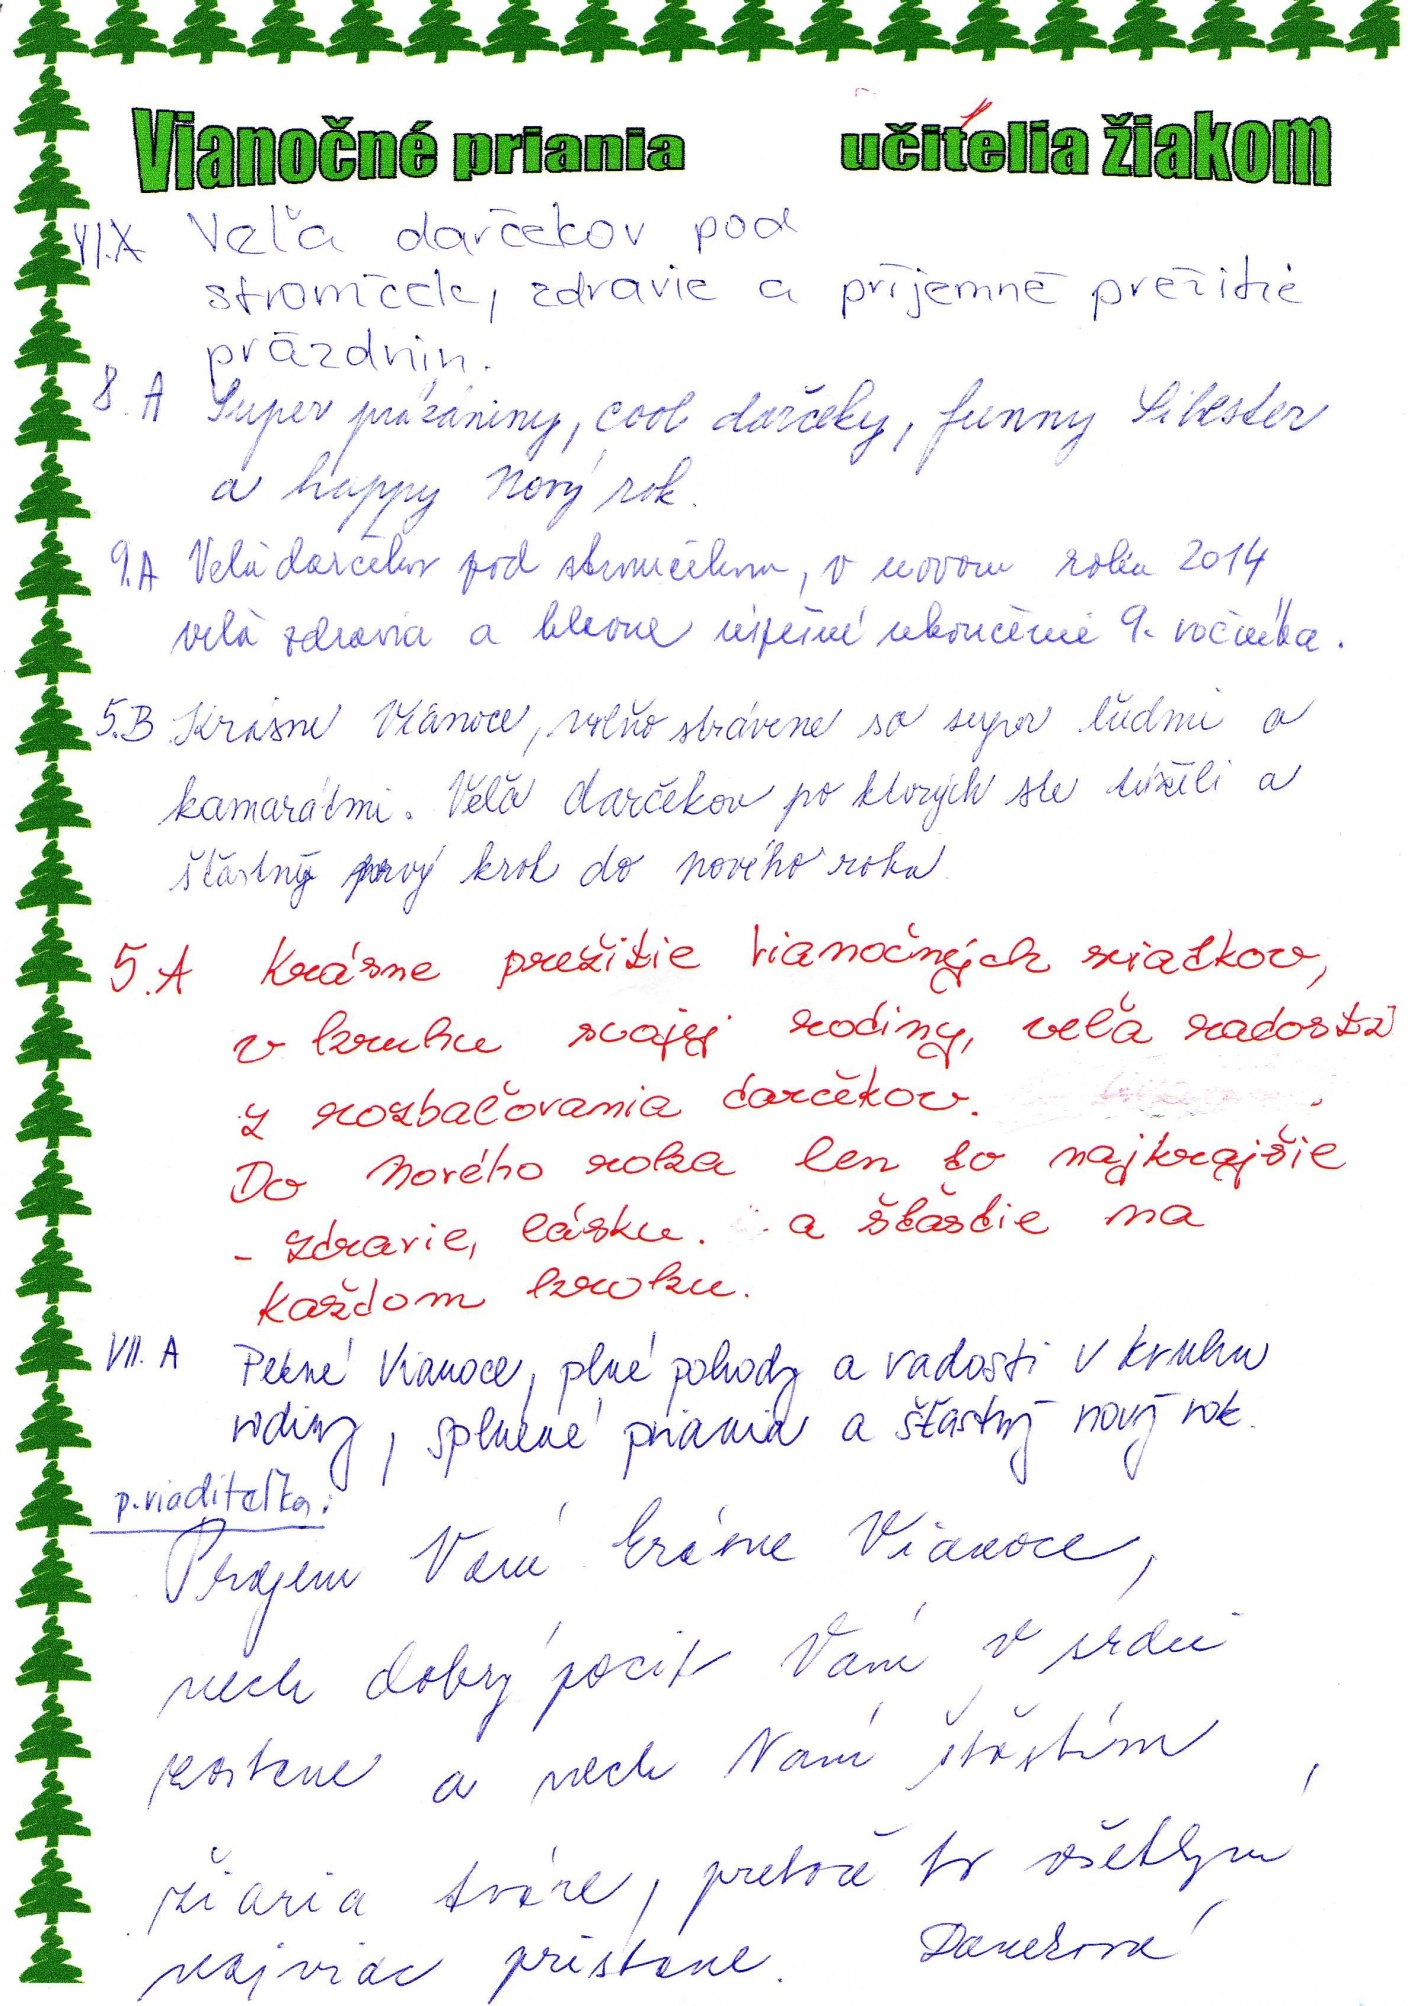 Vianočné priania učitelia žiakom
VI.A Veľa darčekov pod
stromček, zdravie a príjemné prežitie
prázdnin.
8.A Super prázdniny, cool darčeky, funny Silvester
a happy Nový rok.
9.A Veľa darčekov pod stromčekom, v novom roku 2014
veľa zdravia a hlavne úspešné ukončenie 9. ročníka.
5.B Krásne Vianoce, voľno strávené so super ľuďmi a
kamarátmi. Veľa darčekov po ktorých ste túžili a
šťastný prvý krok do nového roka
5.A Krásne prežitie vianočných sviatkov,
v kruhu svojej rodiny, veľa radosti
z rozbaľovania darčekov.
Do Nového roka len to najkrajšie
- zdravie, lásku. a šťastie na
každom kroku.
VII. A Pekné Vianoce, plné pohody a radosti v kruhu
rodiny, splnené priania a šťastný nový rok.
p. riaditeľka:
Prajem Vám krásne Vianoce,
nech dobrý pocit Vám v srdci
zostane a nech Vám šťastím
žiaria tváre, pretože to všetkým
najviac pristane. Daneková